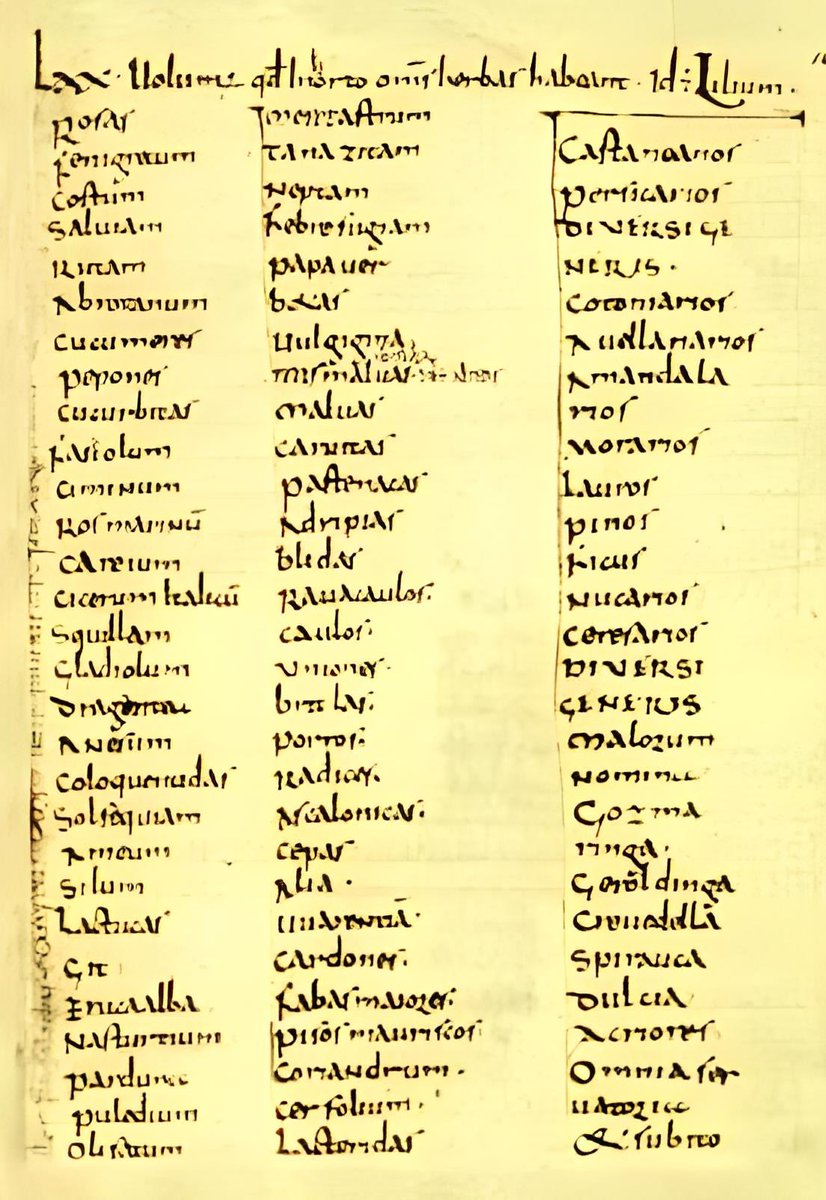 Lxx. Uolum; qd In orto omis herbas habeant. Id ÷ Lilium.
Rosas
fenigrecum
Costum
Saluiam
Rutam
Abrotanum
Cucumeres
pepones
cucurbitas
fasiolum
ciminum
Rosmarinū
careium
cicerum Italicū
Squillam
Gladiolum
Dragantea
Anesum
Coloquentidas
Solsequiam
Ameum
Silum
Lactucas
Git
Erucaalba
Nasturtium
parduna
puledium
Olisatum
mentastrum
Tanazitam
Neptam
febrefugiam
papauer
betas
Uulgigina
mismaluas
maluas
caruitas
pastenacas
Adripias
blidas
Rauacaulos
caulos
Uniones
britlas
porros
Radices
Ascalonicas
cepas
Alia.
uuarentiā
cardones
fabasmaiores
pisosmauriscos
Coriandrum.
cerfolium.
Lacteridas
Castanearios
persicarios
DIVERSI GE
NERIS.
Cotoniarios
Auellanarios
Amandala
rios
Morarios
Lauros
pinos
ficus
Nucarios
Ceresarios
DIVERSI
GENERIS
Malorum
Nomina
Gozma
ringa.
Geroldinga
Creuedellā
Spirauca
Dulcia
Acriores
Omnia ser
uatoria
Et subito